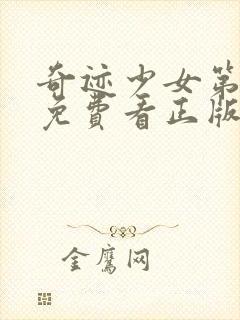 奇迹少女第
免費看正版
金鹰网